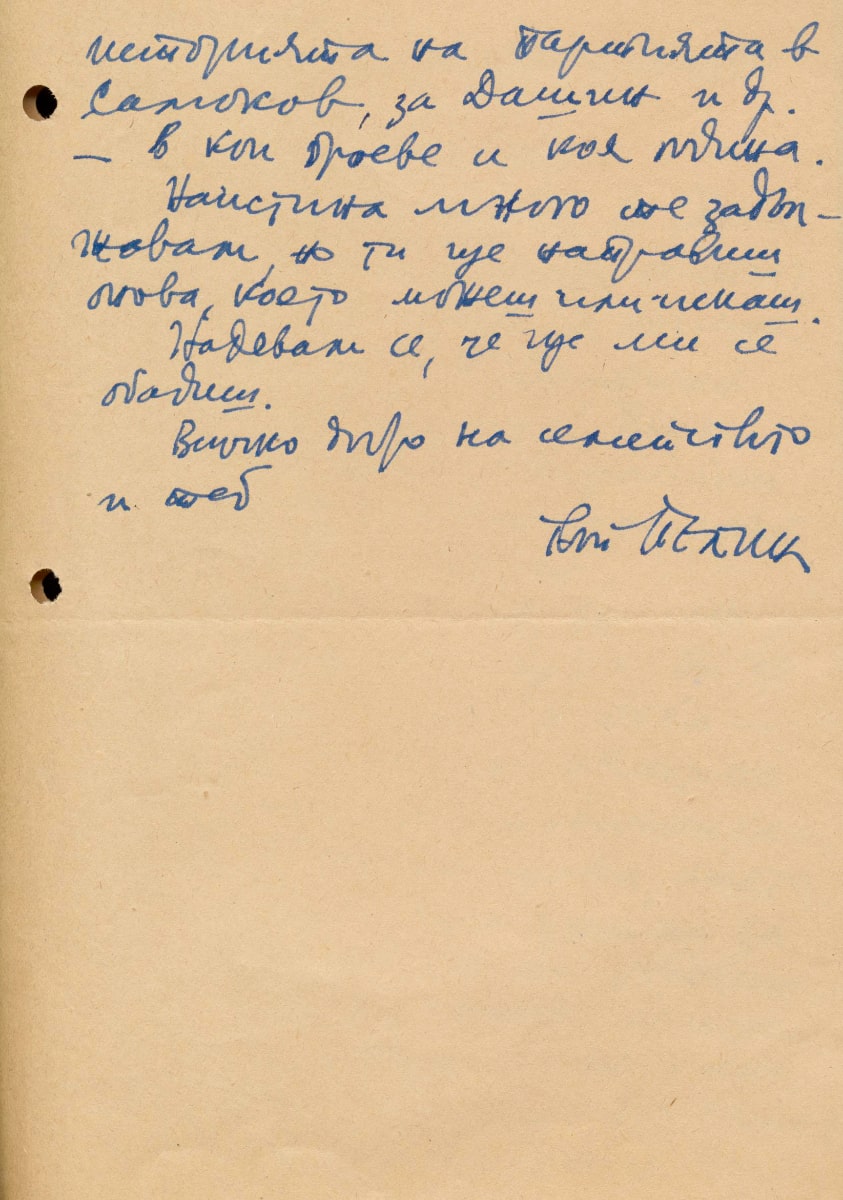 историята на партията в
Самоков, за Дашин и др.
– в кои броеве и коя година.
Наистина много те задъл-
жавам, но ти ще направиш
онова, което можеш или искаш.
Надевам се, че ще ми се
обадиш.
Всичко добро на семейството
и теб
твой